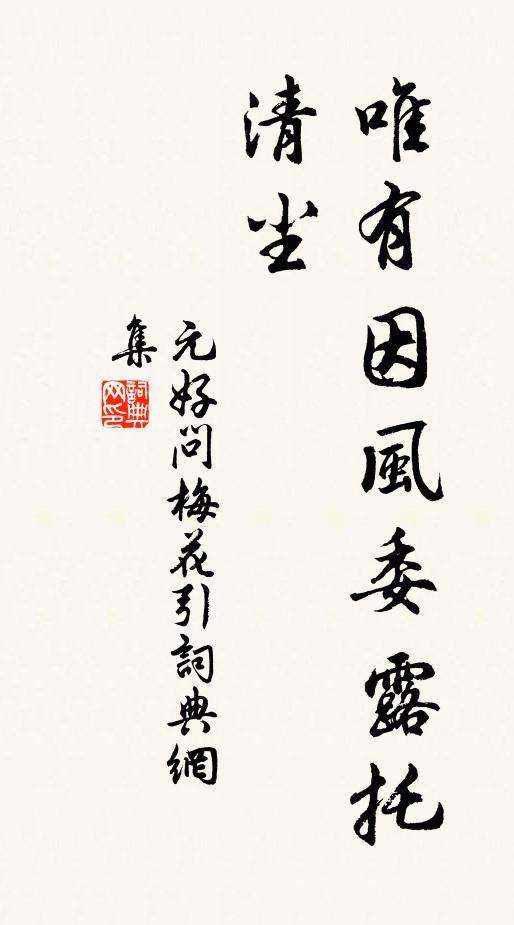 唯有因風委露托
清尘
元好問梅花引詞典網
集
詞典
网印